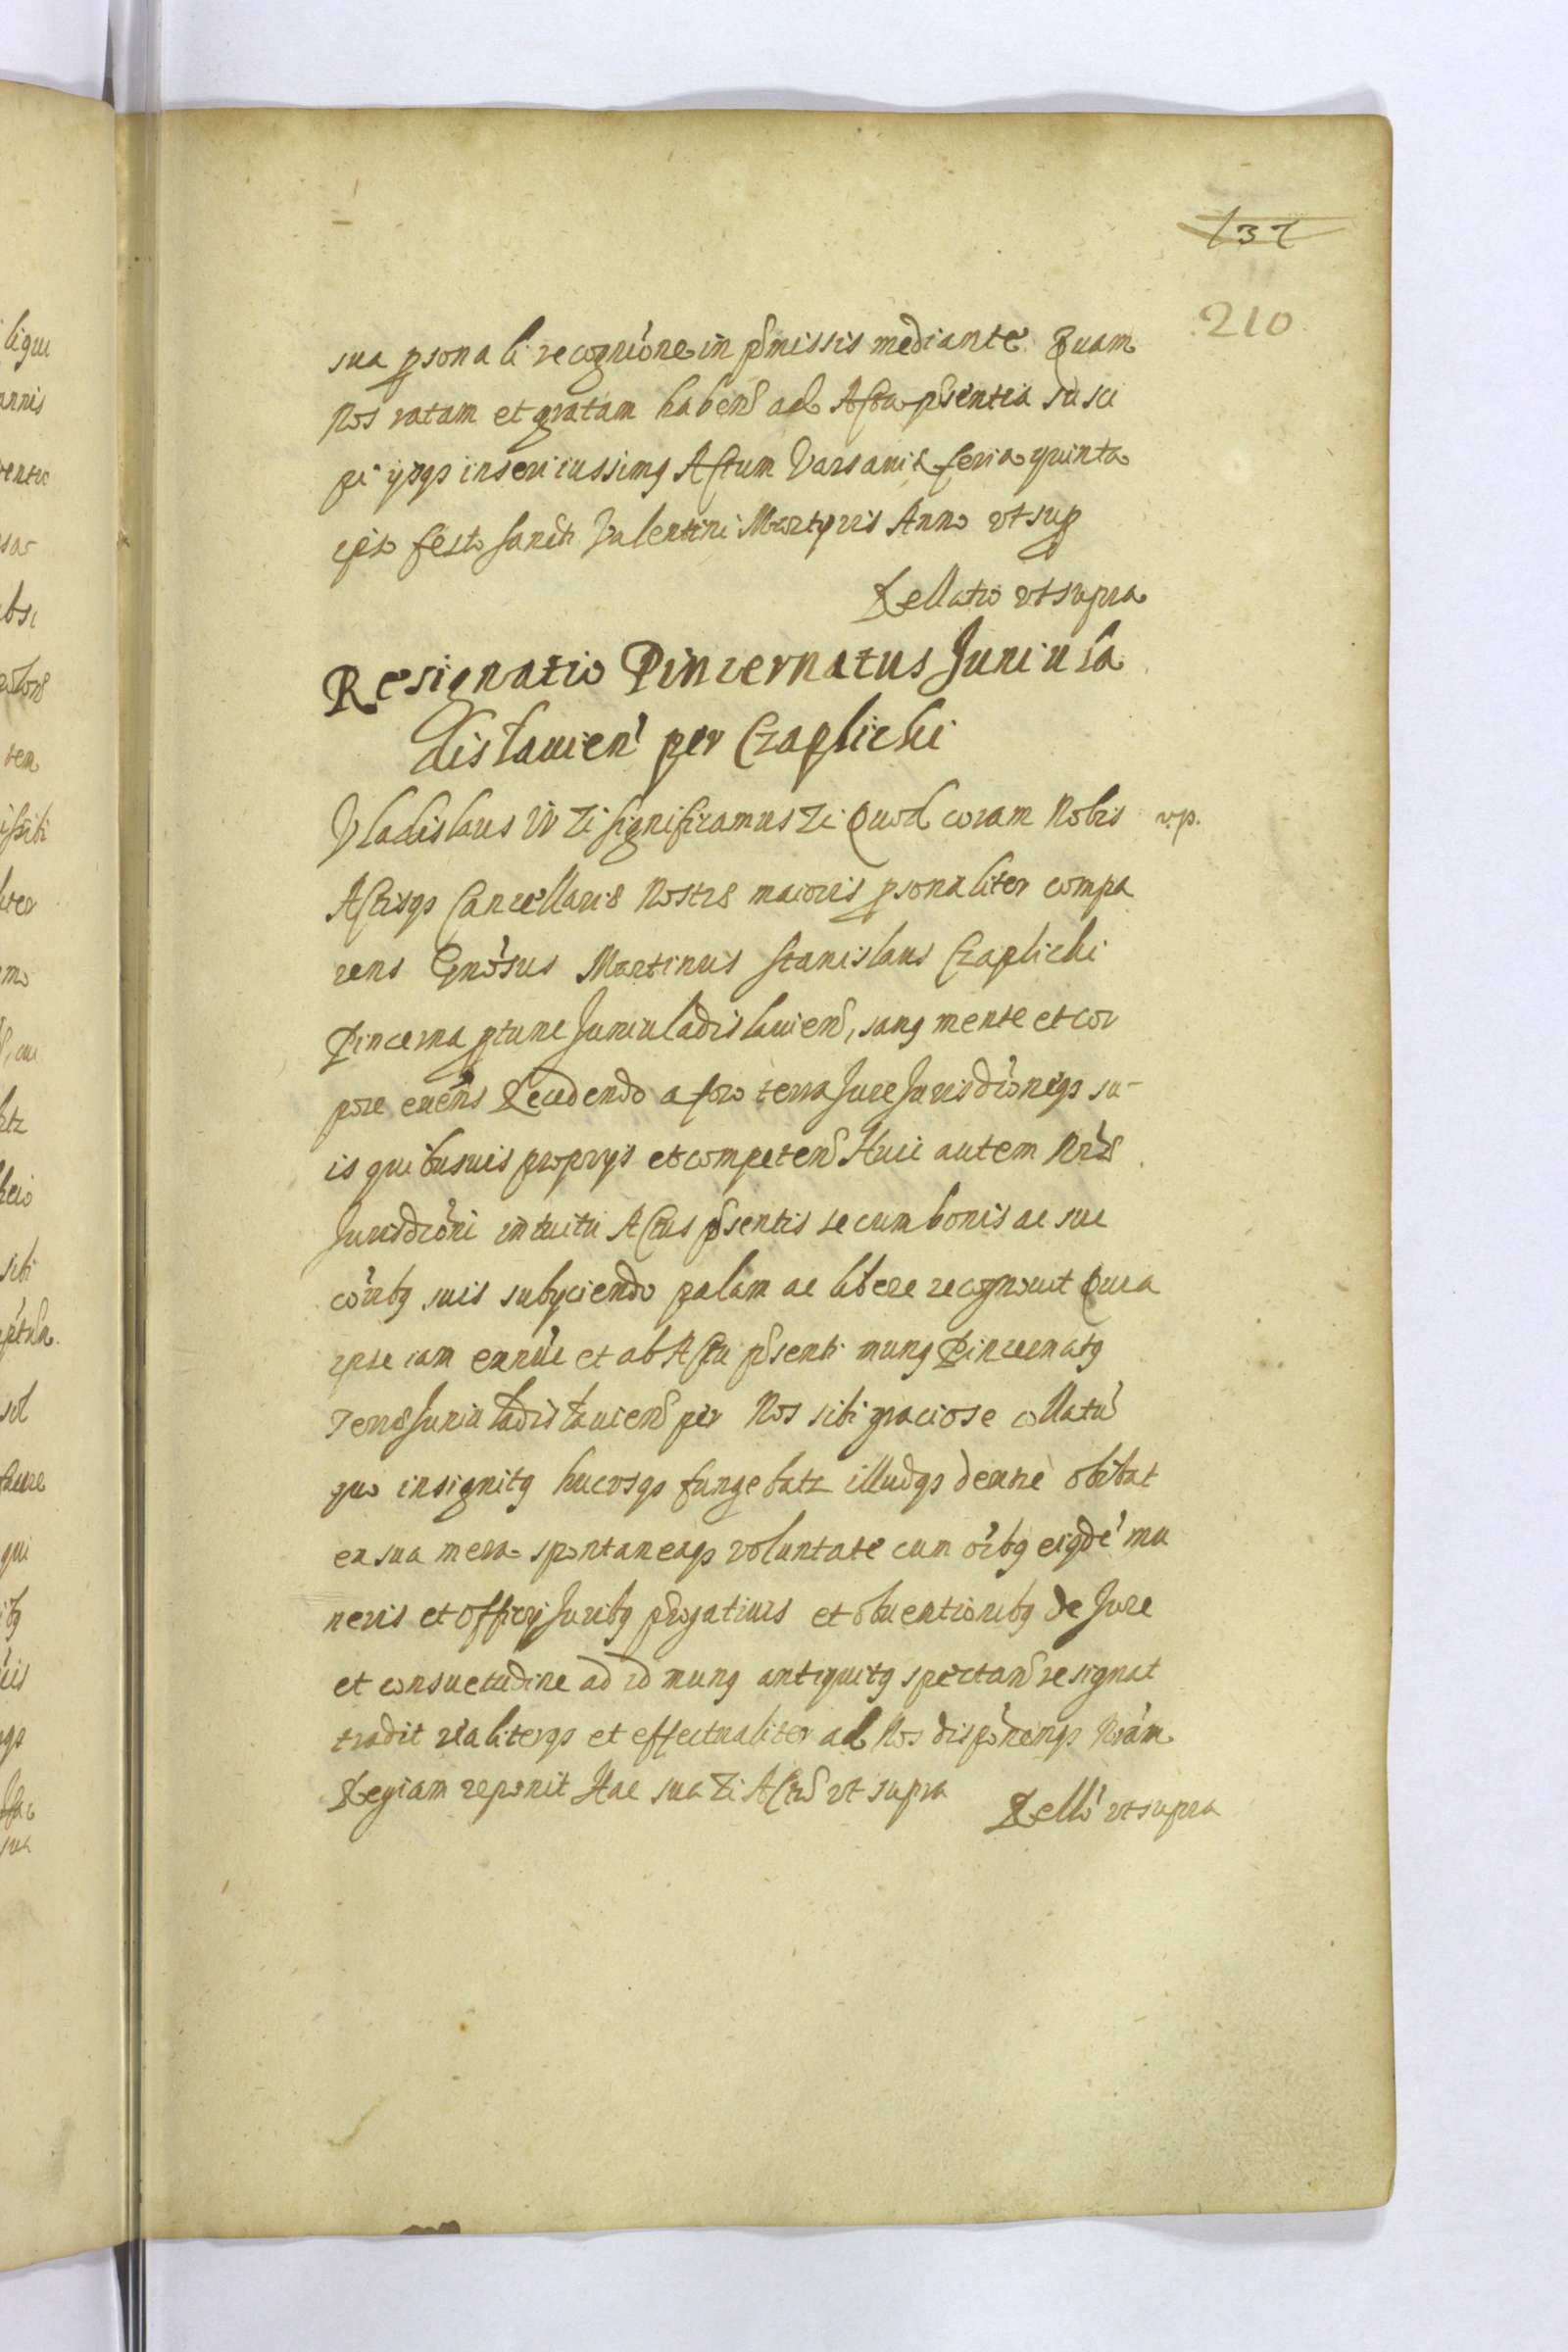 137
210
sua psonali recognione in pmissis mediante Quam
Nos ratam et gratam haben ad Acta psentia susci
pi ysqs inseri iussimq Actum Varsaviæ feria quinta
ipso festo Sancti Valentini Martyris Anno vt sup
Rellatio vt supra
Resignatio Pincernatus Juniula
dislauien per Czaplicki
Vladislaus IV Zi significamus Zi Quod coram Nobis v.p.
Actisqs Cancellariæ Nostræ maioris psonaliter compa
rens Gnosus Martinus Stanislaus Czaplicki
Pincerna ptunc Juniuladislauien, sanq mente et cor
pore exens Recedendo a foro terra Jure Jurisdioneqs su-
is quibusuis proprys et competen Huic autem Nræ
Jurisdioni intuitu Actus psentis se cum bonis ac suc
coribq suis subyciendo palam ac libere recognouit Quia
ipse iam exnuc et ab Actu psenti munq Pincernatq
Terræ Juniuladislauien per Nos sibi graciose collatu
quo insignitq hucvsqs fungebatz illudqs dextre obibat
ex sua mera spontaneaqs voluntate cum oibq eiqde mu
neris et officy Juribq progatiuis et obuentionibq de Jure
et consuetudine ad id munq antiquitq spectan resignat
tradit realiterqs et effectualiter ad Nos disponemqs Nram
Regiam reponit Hac sua Zi Act vt supra
Rello vt supra